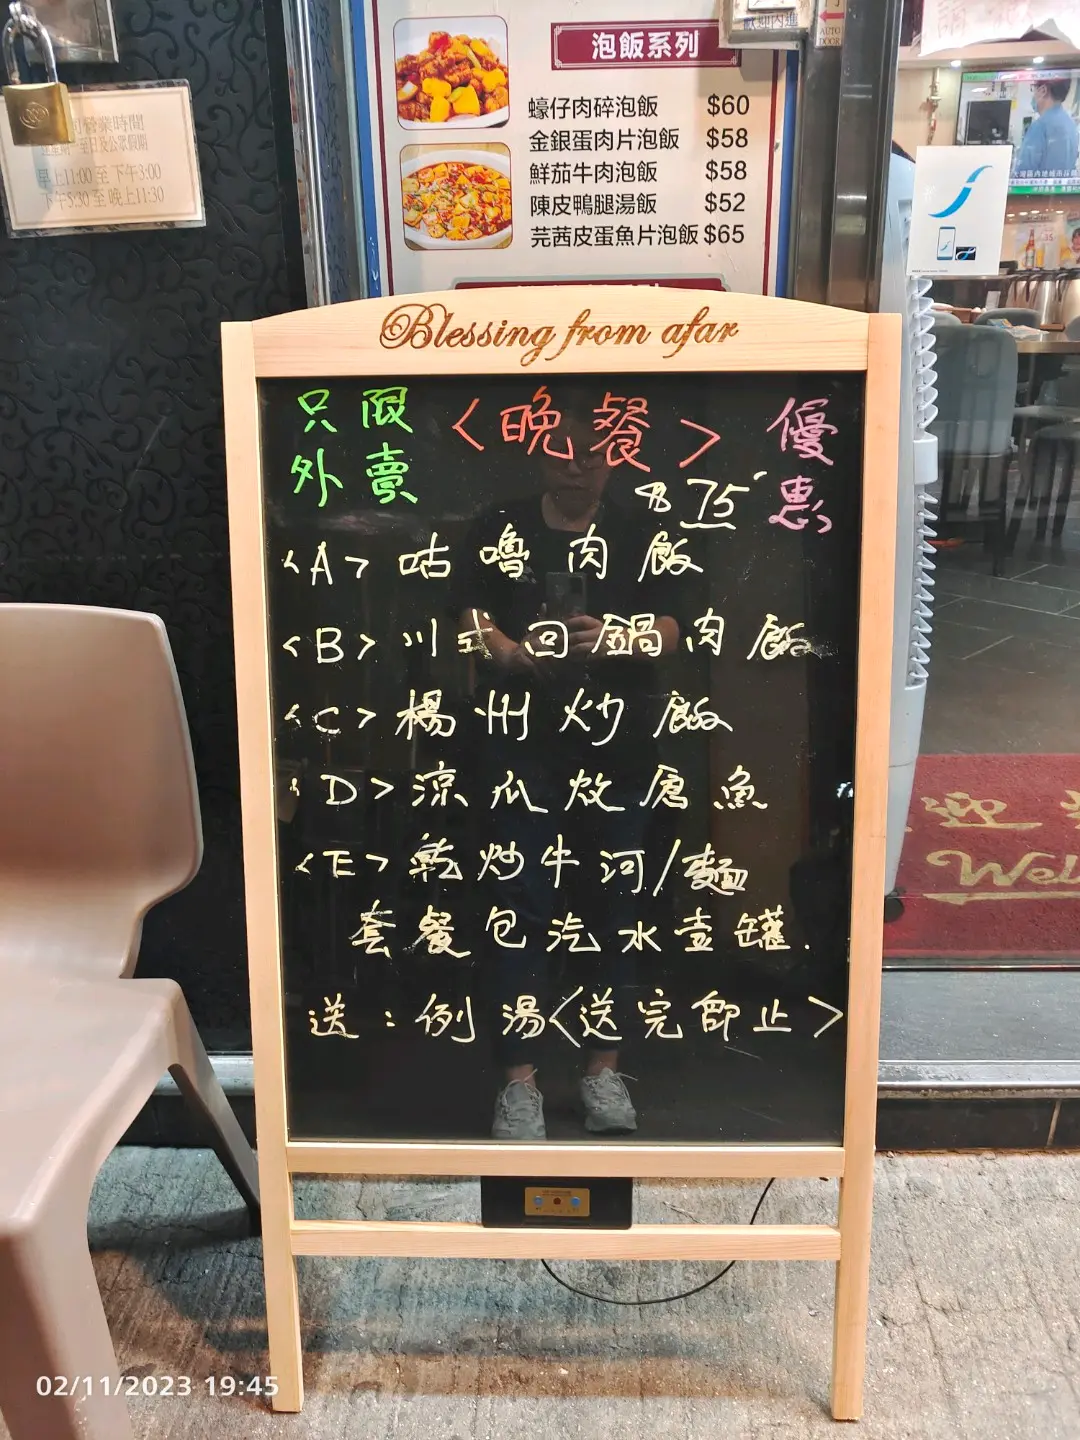 泡飯系列
蠔仔肉碎泡飯 $60
金銀蛋肉片泡飯 $58
鮮茄牛肉泡飯 $58
陳皮鴨腿湯飯 $52
芫茜皮蛋魚片泡飯 $65
營業時間
至日及公眾假期
早上11:00 至 下午3:00
下午5:30 至 晚上11:30
AUTO
DOOR
Blessing from afar
只限外賣
<晚餐>
優惠
$75
<A> 咕嚕肉飯
<B> 川式回鍋肉飯
<C> 楊州炒飯
<D> 涼瓜炆唐魚
<E> 乾炒牛河/麵
套餐包汽水壹罐.
送:例湯<送完即止>
迎
Wel
02/11/2023 19:45